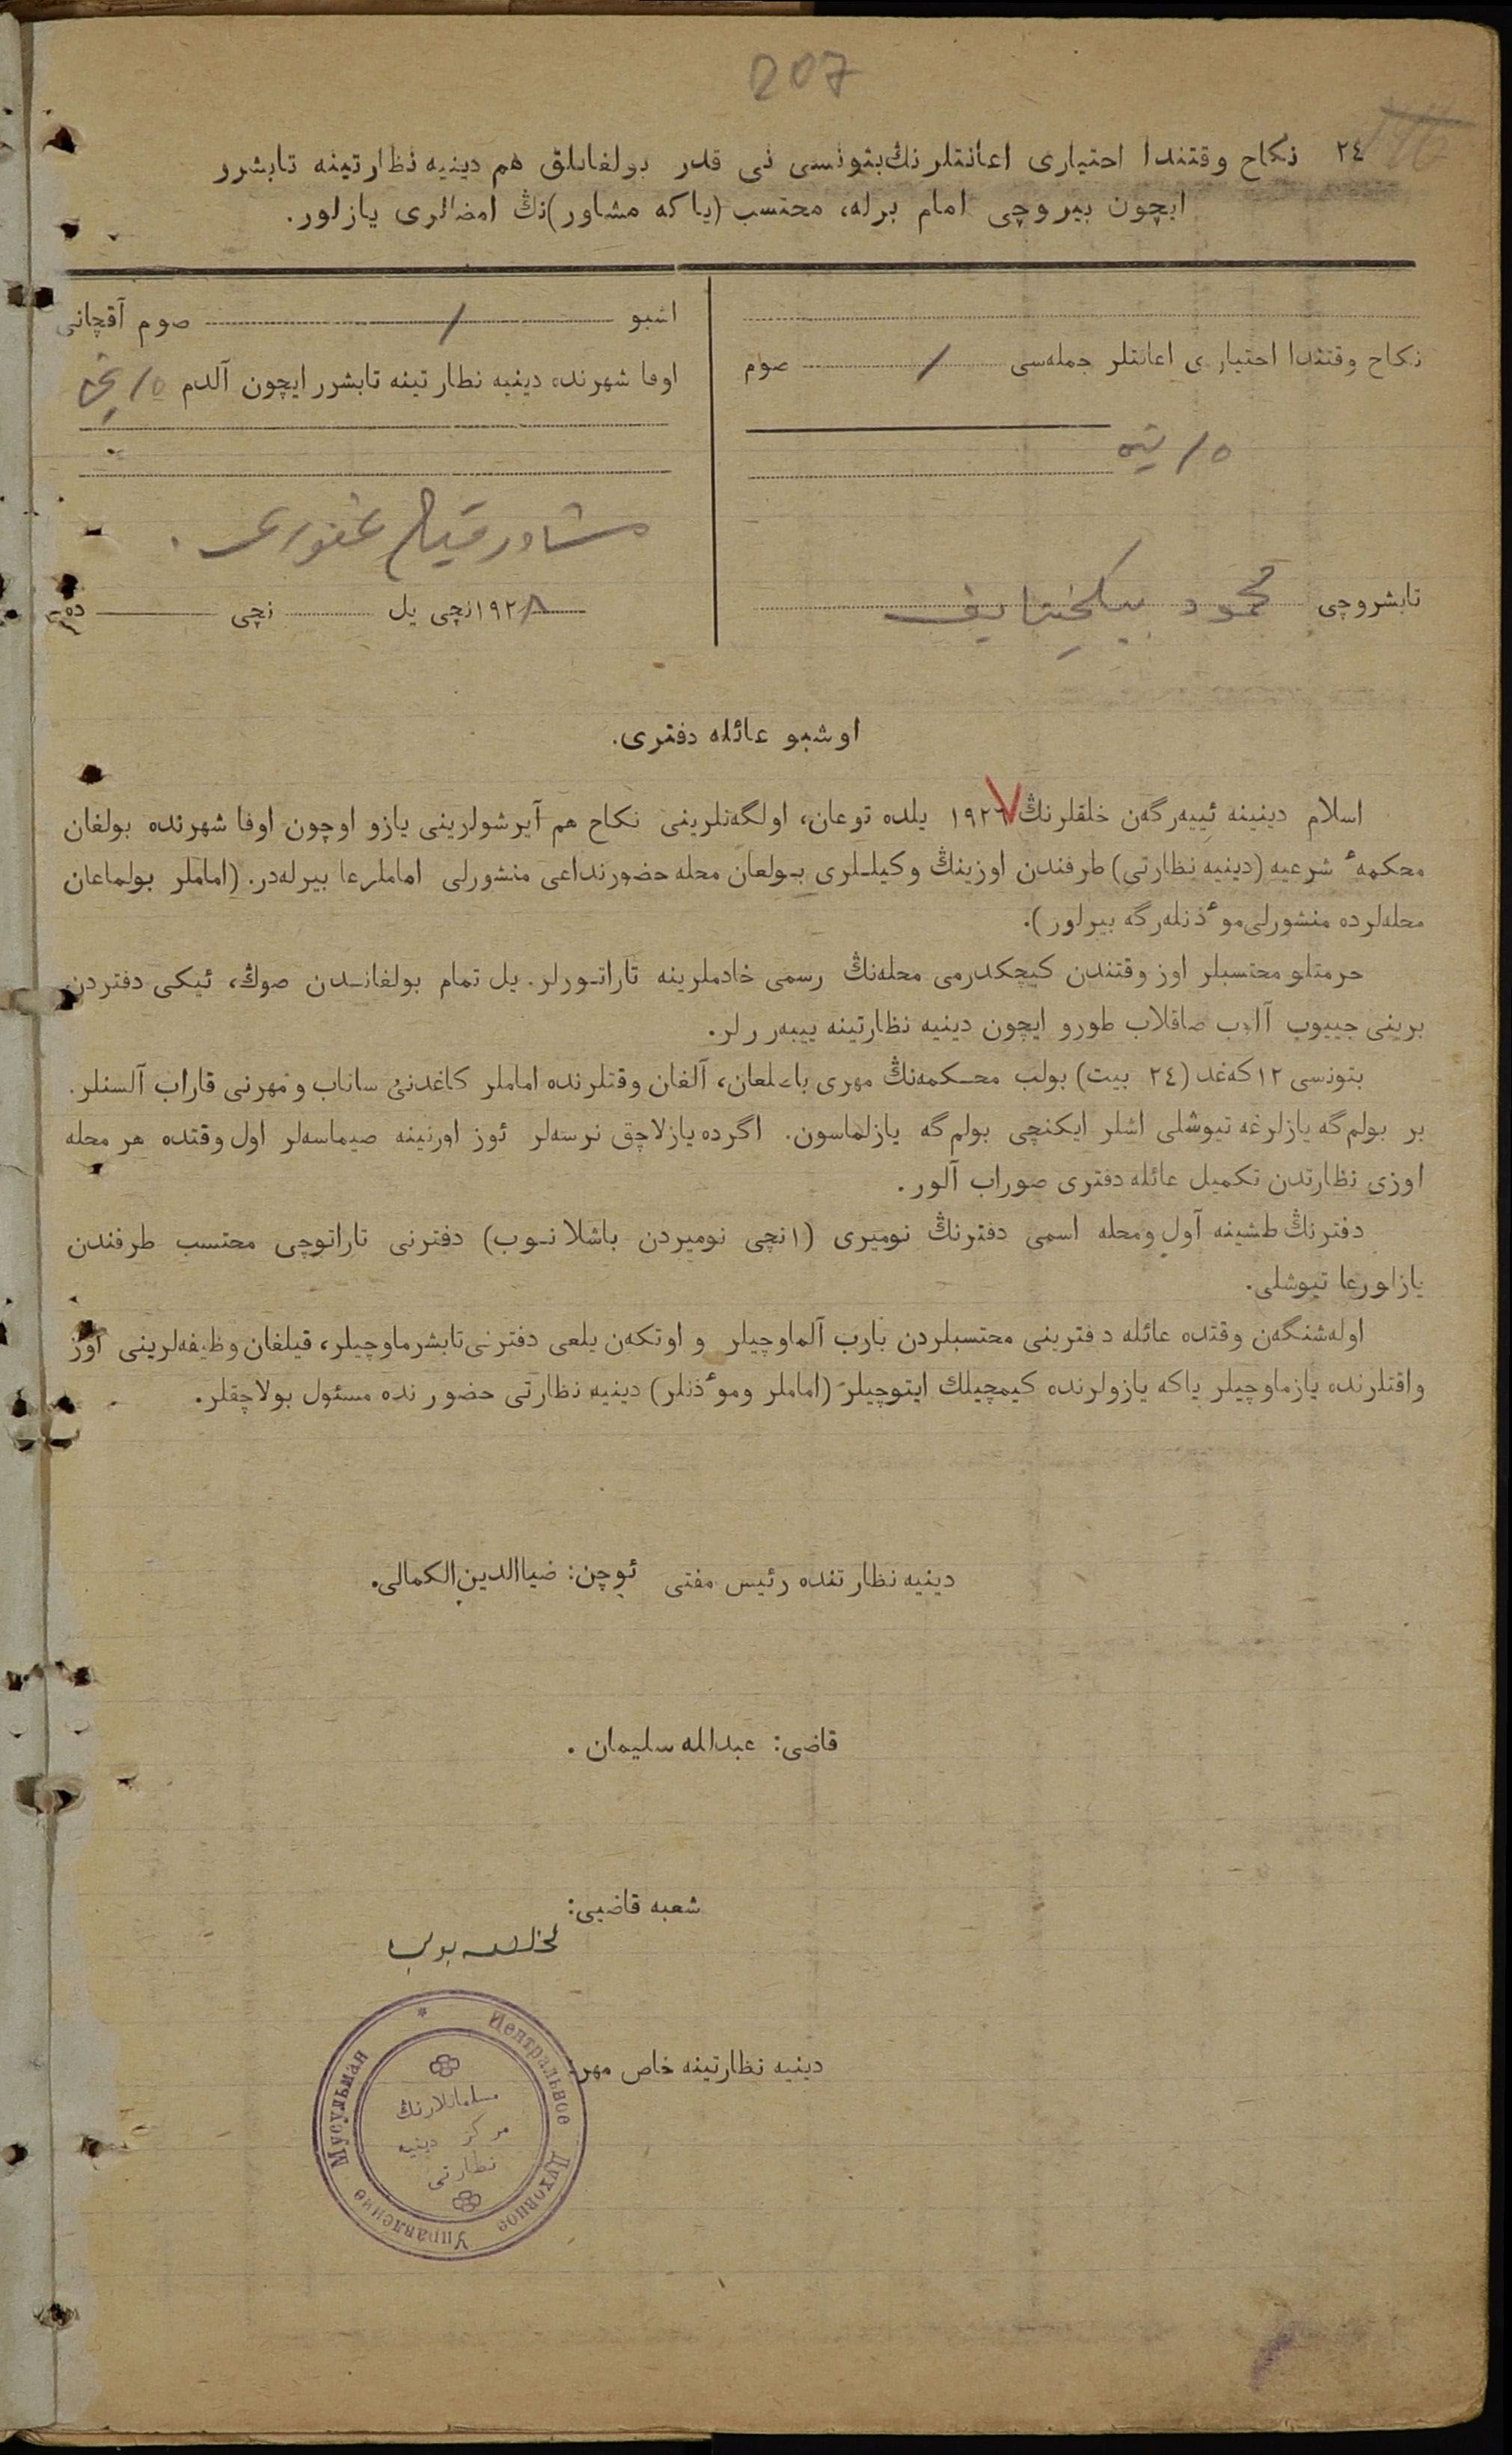 207
٢٤ نكاح وقتندا احتياری اعانتلرنڭ بتونسی نی قدر بولغانلق هم دينيه نظارتينه تابشرر
ايچون بيروچی امام برله، محتسب (ياكه مشاور)نڭ امضالری يازلور.
نكاح وقتندا احتياری اعانتلر جمله‌سی / صوم
تابشروچی محمود
اشبو / صوم آقچانی
اوفا شهرنده دينيه نظارتينه تابشرر ايچون آلدم
مشاور غفوری.
١٩٢٨نچی يل نچی ده
اوشبو عائله دفتری.
اسلام دينينه ئييه‌رگه‌ن خلقلرنڭ ١٩٢٦ يلده توعان، اولگه‌نلرينی نكاح هم آيرشولرينی يازو اوچون اوفا شهرنده بولغان
محكمهٔ شرعيه (دينيه نظارتی) طرفندن اوزينڭ وكيللری بولعان محله حضورنداعی منشورلی اماملرعا بيرله‌در. (اماملر بولماعان
محله‌لرده منشورلی موٴذنله‌رگه بيرلور).
حرمتلو محتسبلر اوز وقتندن كيچكدرمی محله‌نڭ رسمی خادملرينه تاراتورلر. يل تمام بولغاندن صوڭ، ئيكی دفتردن
برينی جييوب آلوب صاقلاب طورو ايچون دينيه نظارتينه ييبه‌ررلر.
بتونسی ١٢ كه‌غد (٢٤ بيت) بولب محكمه‌نڭ مهری باصلعان، آلغان وقتلرنده اماملر كاغدنی ساناب و مهرنی قاراب آلسنلر.
بر بولم‌گه يازلرغه تيوشلی اشلر ايكنچی بولم‌گه يازلماسون. اگرده يازلاچق نرسه‌لر ئوز اورنينه صيماسه‌لر اول وقتده هر محله
اوزی نظارتدن تكميل عائله دفتری صوراب آلور.
دفترنڭ طشينه آول ومحله اسمی دفترنڭ نوميری (١نچی نوميردن باشلانوب) دفترنی تاراتوچی محتسب طرفندن
يازلورعا تيوشلی.
اوله‌شنگه‌ن وقتده عائله دفترينی محتسبلردن بارب آلماوچيلر و اوتكه‌ن يلعی دفترنی تابشرماوچيلر، قيلغان وظيفه‌لرينی اوز
واقتلرنده يازماوچيلر ياكه يازولرنده كيمچيلك ايتوچيلر (اماملر وموٴذنلر) دينيه نظارتی حضورنده مسئول بولاچقلر.
دينيه نظارتنده رئيس مفتی ئوچن: ضياالدين الكمالی.
قاضی: عبدالله سليمان.
شعبه قاضيی:
دينيه نظارتينه خاص مهر:
Центральное Духовное Управление Мусульман
مسلمانلارنڭ
مركز دينيه
نظارتی